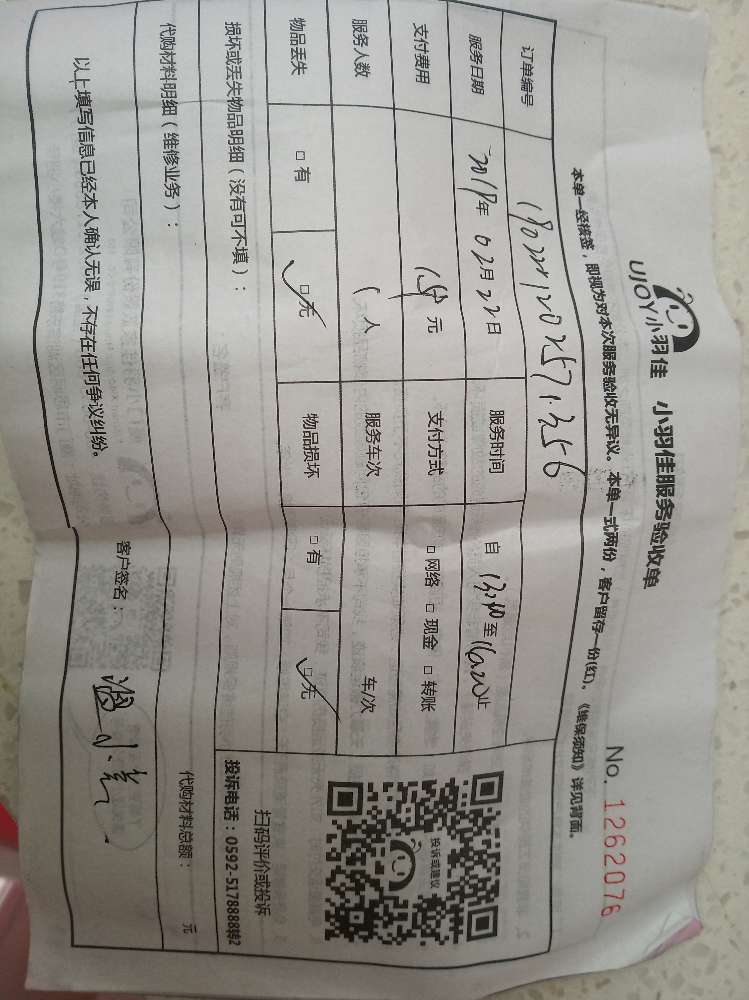 UJOY小羽佳 小羽佳服务验收单
No. 1262076
本单一经核签，即视为对本次服务验收无异议。本单一式两份，客户留存一份(红)。《维保须知》详见背面。
订单编号
服务日期 年 02月22日 服务时间 自 13:40至16:20止
支付费用 元 支付方式 □ 网络 □ 现金 □ 转账
服务人数 1 人 服务车次 车/次
物品丢失 □ 有 □ 无 物品损坏 □ 有 □ 无
投诉或建议
扫码评价或投诉
投诉电话：0592-5178888转2
损坏或丢失物品明细（没有可不填）：
代购材料明细（维修业务）： 代购材料总额： 元
以上填写信息已经本人确认无误，不存在任何争议纠纷。 客户签名：